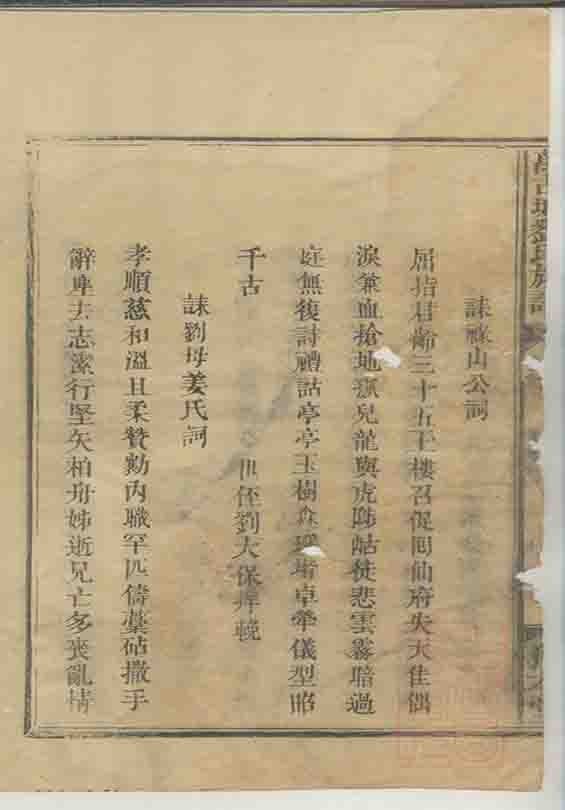 劉氏族譜
誄祿山公詞
屈指君齡三十五玉樓召促囘仙府失天佳偶
淚兼血搶地孤兒龍與虎陟岵徒悲雲霧暗過
庭無復詩禮詁亭亭玉樹森 堦卓犖儀型昭
千古
世侄劉大保拜輓
誄劉母姜氏詞
孝順慈和溫且柔贊勷內職罕匹儔藁砧撒手
辭卑去志潔行堅矢柏舟姊逝兄亡多喪亂情